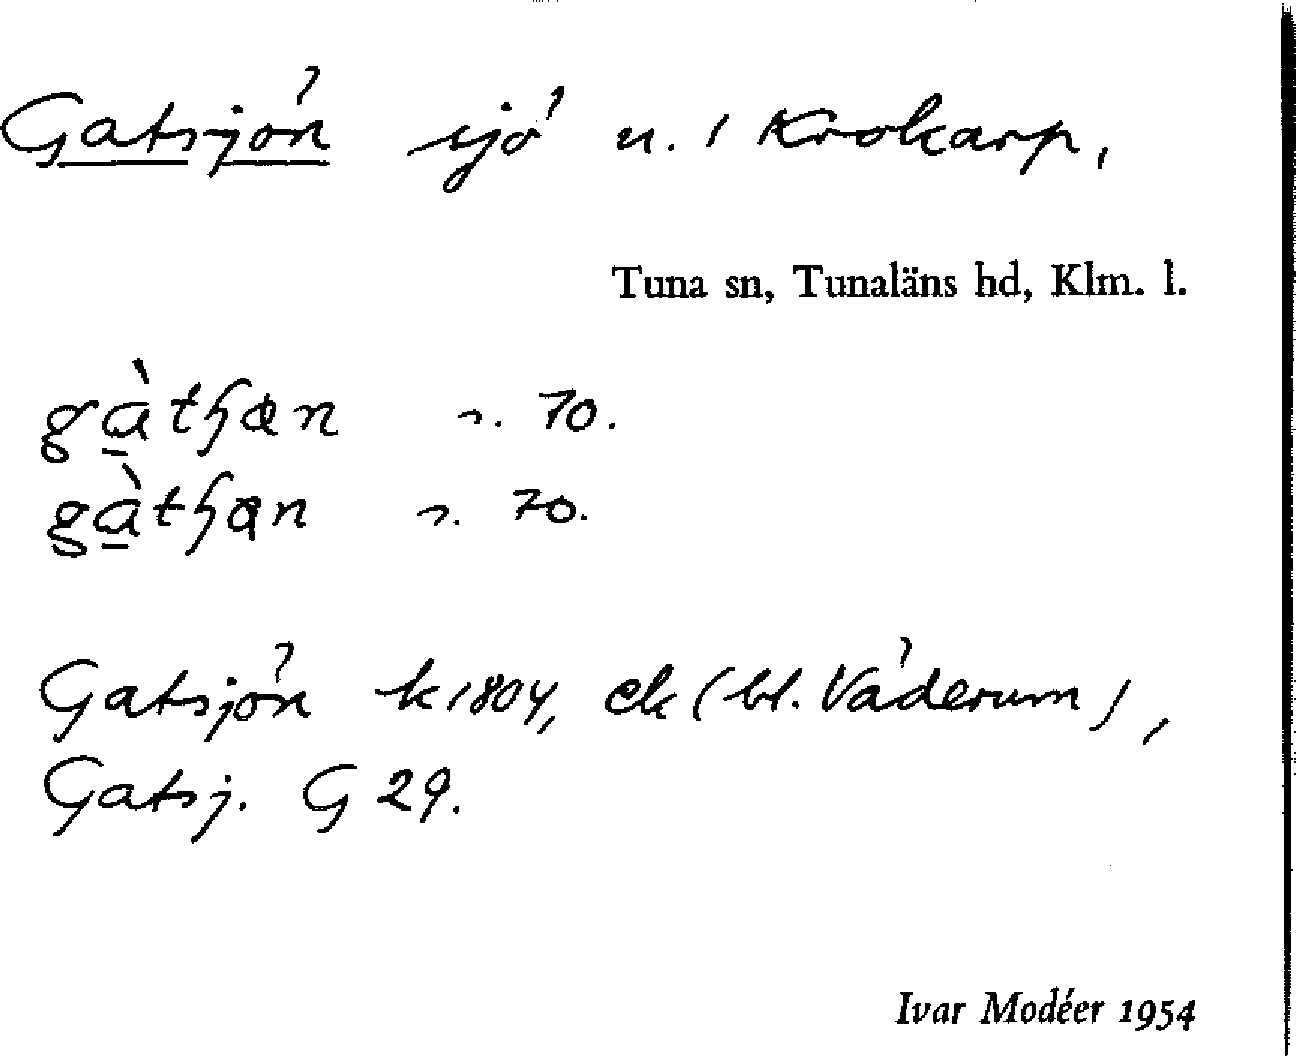 Gatsjön sjö u. / Krokarp,
Tuna sn, Tunaläns hd, Klm. l.
70.
70.
Gatsjön k 1804, ek (bl. Väderum),
Gatsj. G 29.
Ivar Modéer 1954